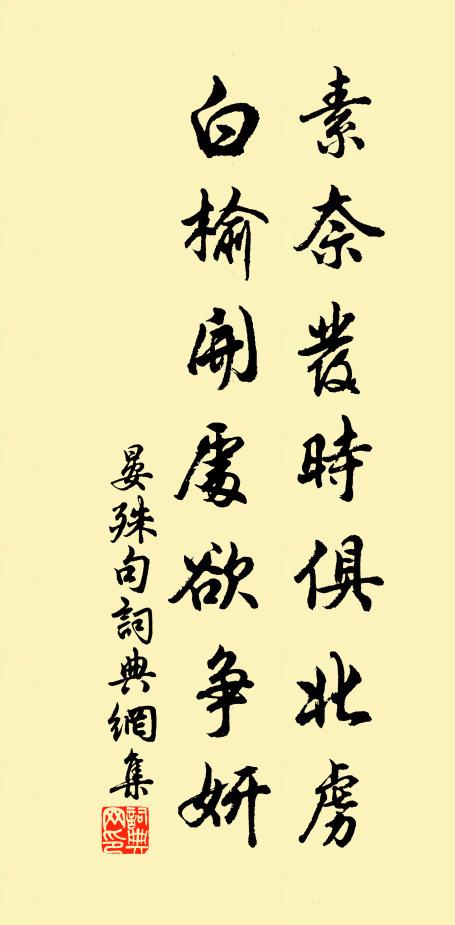 素柰發時俱北虜
白榆開處欲爭妍
晏殊句詞典網集
詞典網印